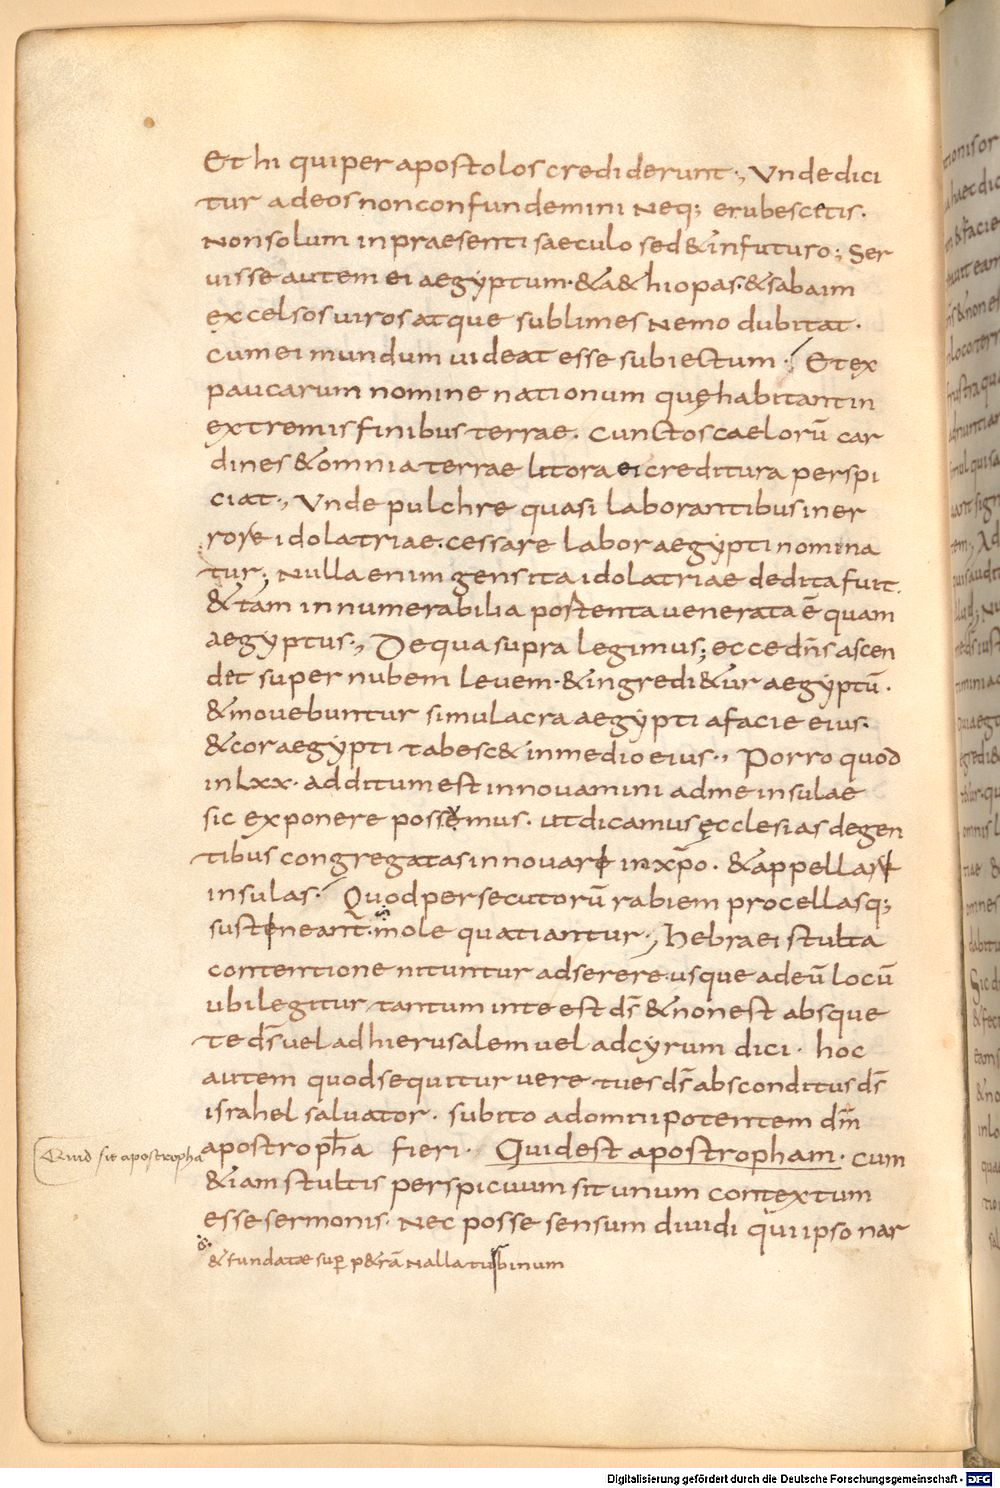 Et hi qui per apostolos crediderunt., Vnde dici
tur adeos non confundemini neq; erubescetis.
Non solum in praesenti saeculo sed & in futuro; Ser
uisse autem ei aegyptum· & a&hiopas· & sabaim
excelsos uiros atque sublimes nemo dubitat·
cum ei mundum uideat esse subiectum· Et ex
paucarum nomine nationum quę habitant in
extremis finibus terrae. Cunctos caelorū car
dines & omnia terrae litora ei creditura perspi
ciat., Vnde pulchre quasi laborantibus in er
rore idolatriae. cessare labor aegypti nomina
tur; Nulla enim gens ita idolatriae dedita fuit.
& tam innumerabilia portenta uenerata ē quam
aegyptus., De qua supra legimus; ecce dn̄s ascen
det super nubem leuem· & ingredi&ur aegyptū·
& mouebuntur simulacra aegypti a facie eius·
& cor aegypti tabesc& in medio eius., Porro quod
in Lxx· additum est innouamini ad me insulae
sic exponere possumus· ut dicamus ęcclesias de gen
tibus congregatas innouari in xp̄o· & appellari
insulas· Quod persecutorū rabiem procellasq;
sustineant. mole quatiantur·, Hebraei stulta
contentione nituntur adserere usque ad eū locū
ubi legitur tantum in te est ds̄ & non est absque
te ds̄ uel ad hierusalem uel ad cyrum dici· hoc
autem quod sequitur uere tu es ds̄ absconditus ds̄
israhel saluator· subito ad omnipotentem dm̄
apostropha fieri· Quid est apostropham· cum
Quid sit apostropha
& iam stultis perspicuum sit unum contextum
esse sermonis· nec posse sensum diuidi qui ipso nar
& fundatae sup p&rā nulla turbinum